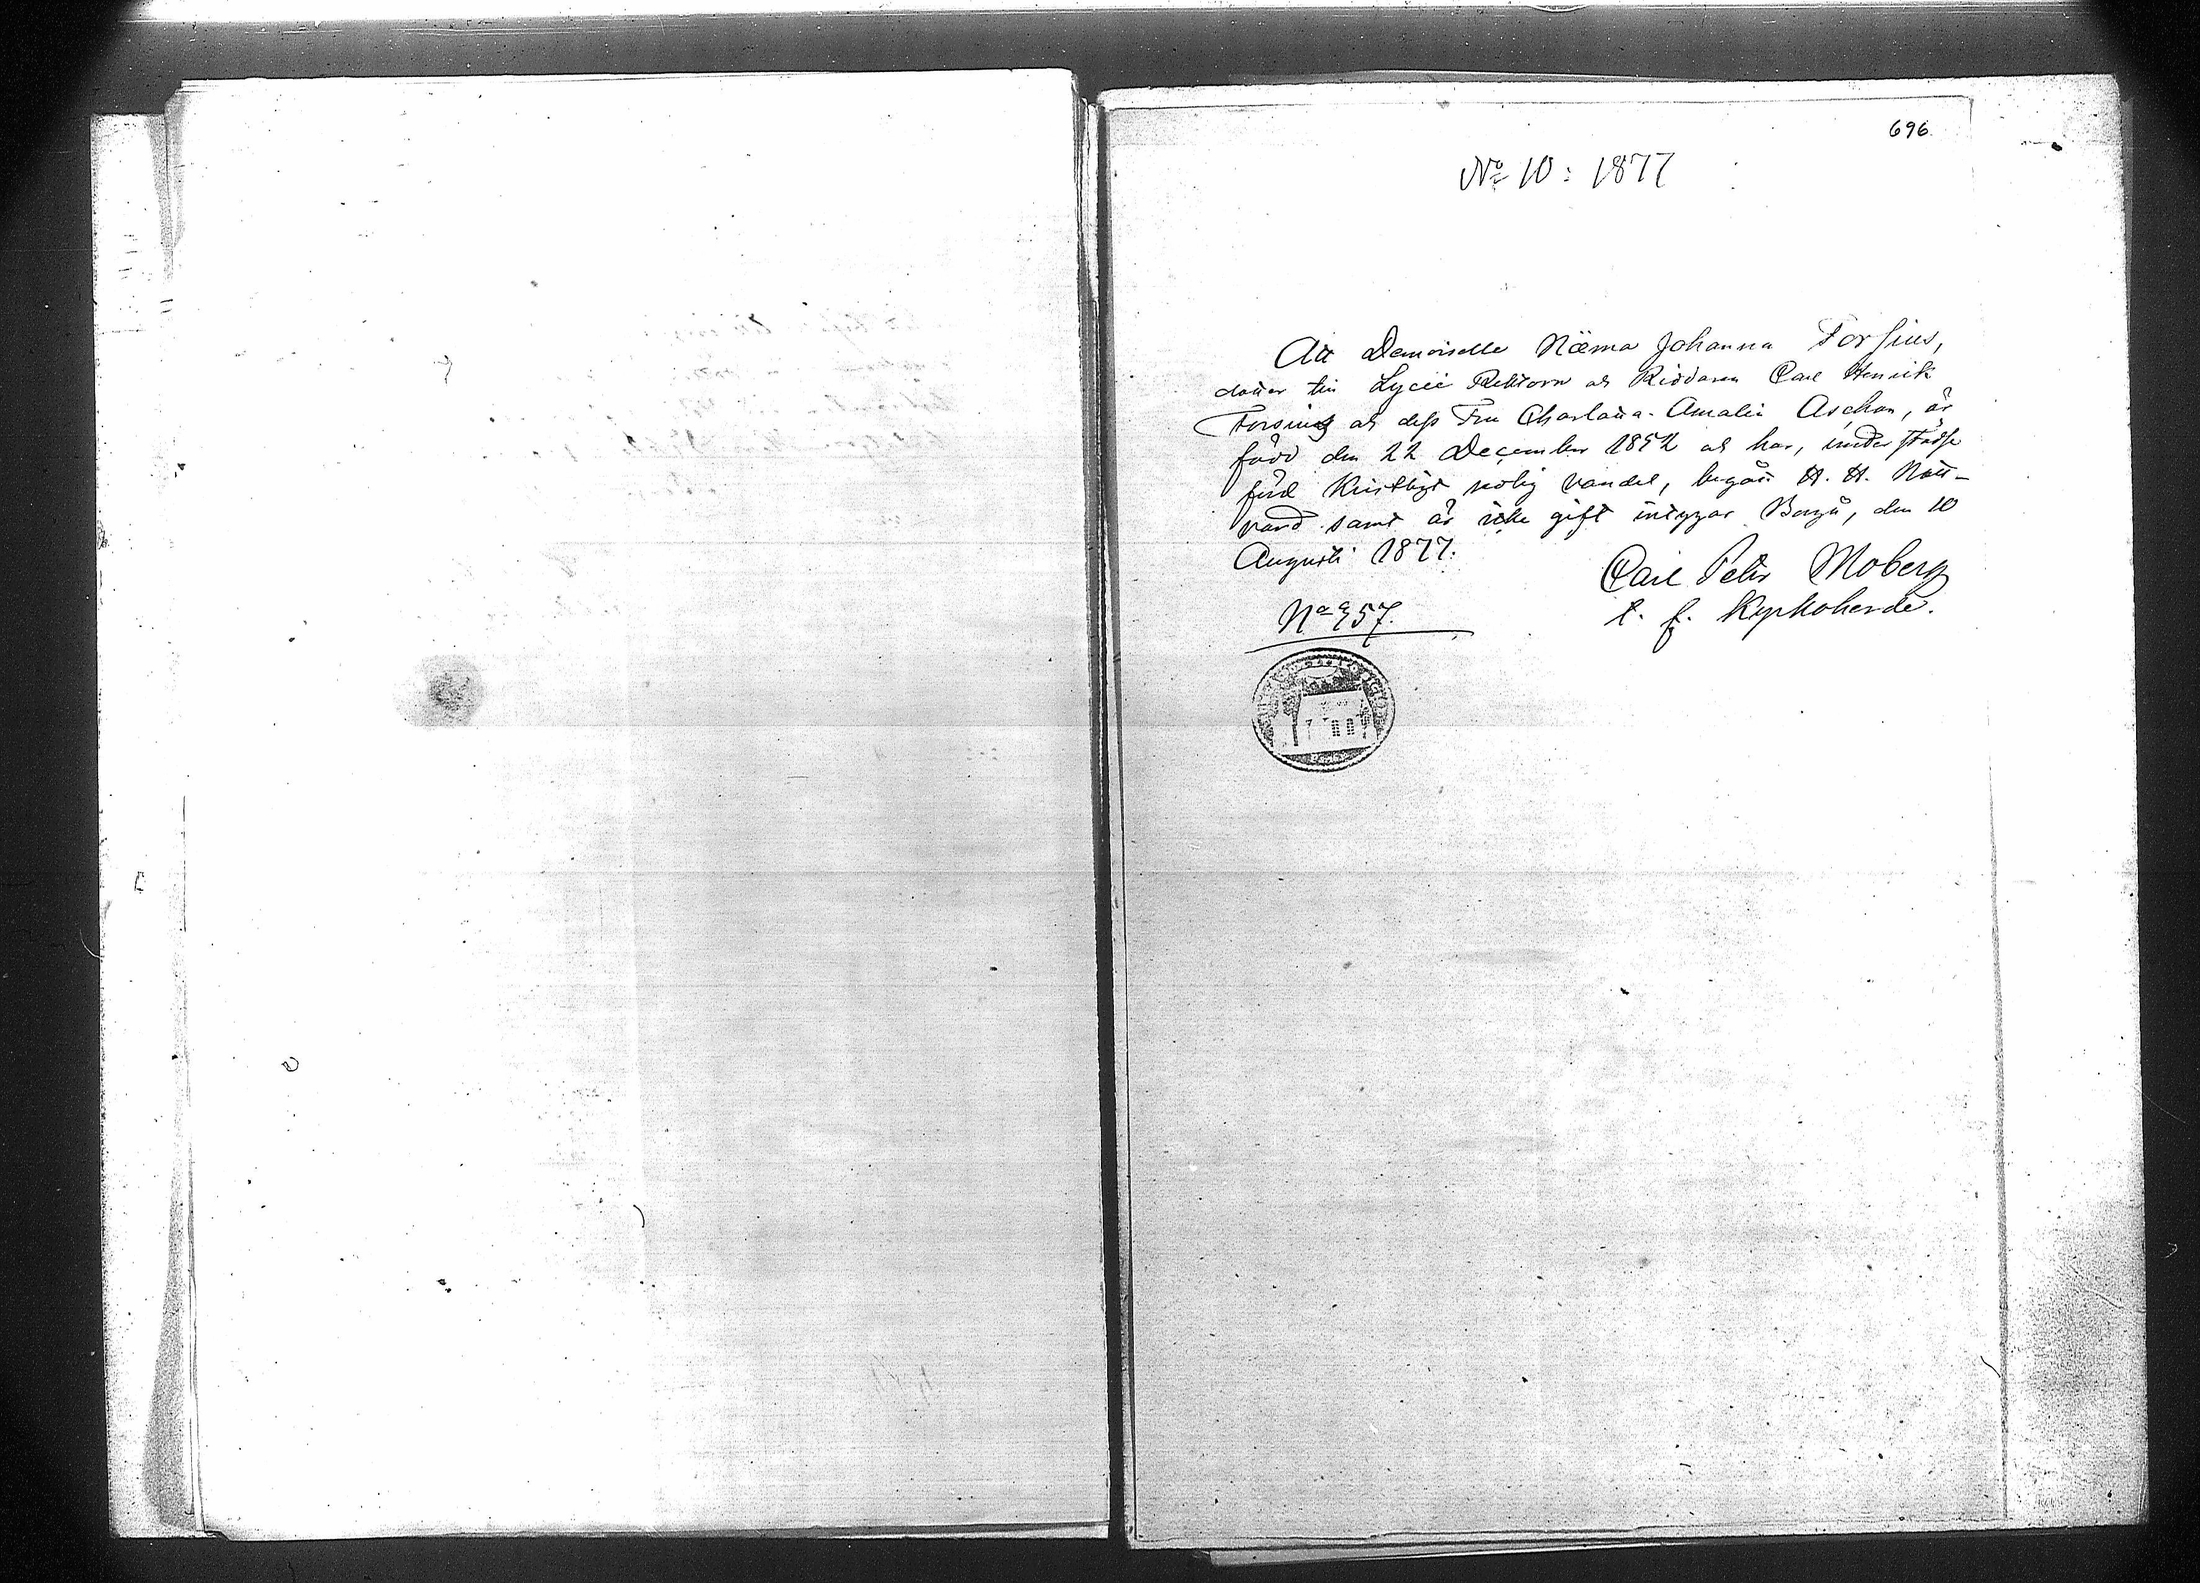 696
No 10: 1877
Att Demoiselle Näema Johanna Forsius,
dotter till Lycei Rektorn och Riddaren Carl Henrik
Forsius och dess Fru Charlotta Amalia Aschan, är
född den 22 December 1852 och har, under städse
förd Kristligt sedlig vandel, begått H. H. Natt-
vard samt är icke gift intygar Borgå, den 10
Augusti 1877.
Carl Petr Moberg
t. f. Kyrkoherde.
No 357.